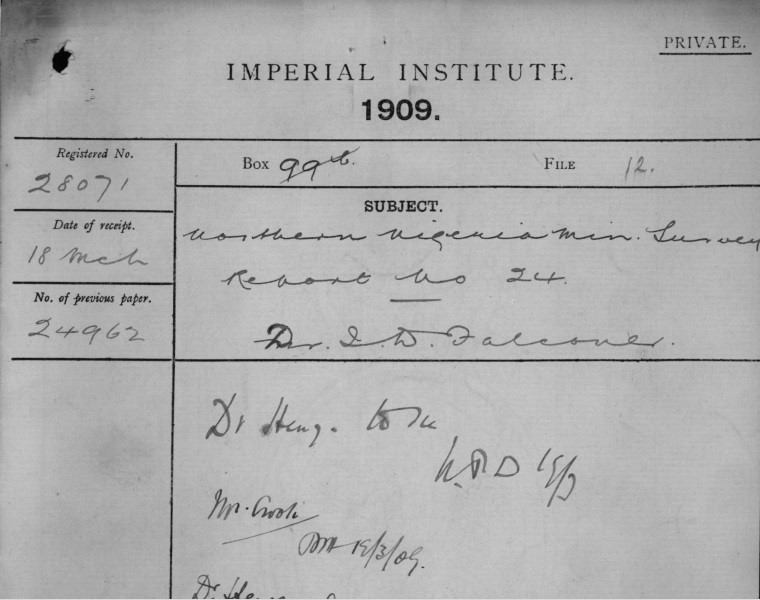 PRIVATE.
IMPERIAL INSTITUTE.
1909.
Registered No.
28071
Date of receipt.
18 Mch
No. of previous paper.
24962
BOX 99b. FILE 12.
SUBJECT.
Northern Nigeria Min. Survey
Report No 24.
Dr. J. D. Falconer.
Dr Henry. to see
19/3
Mr. Crook
19/3/09.
Dr Henry